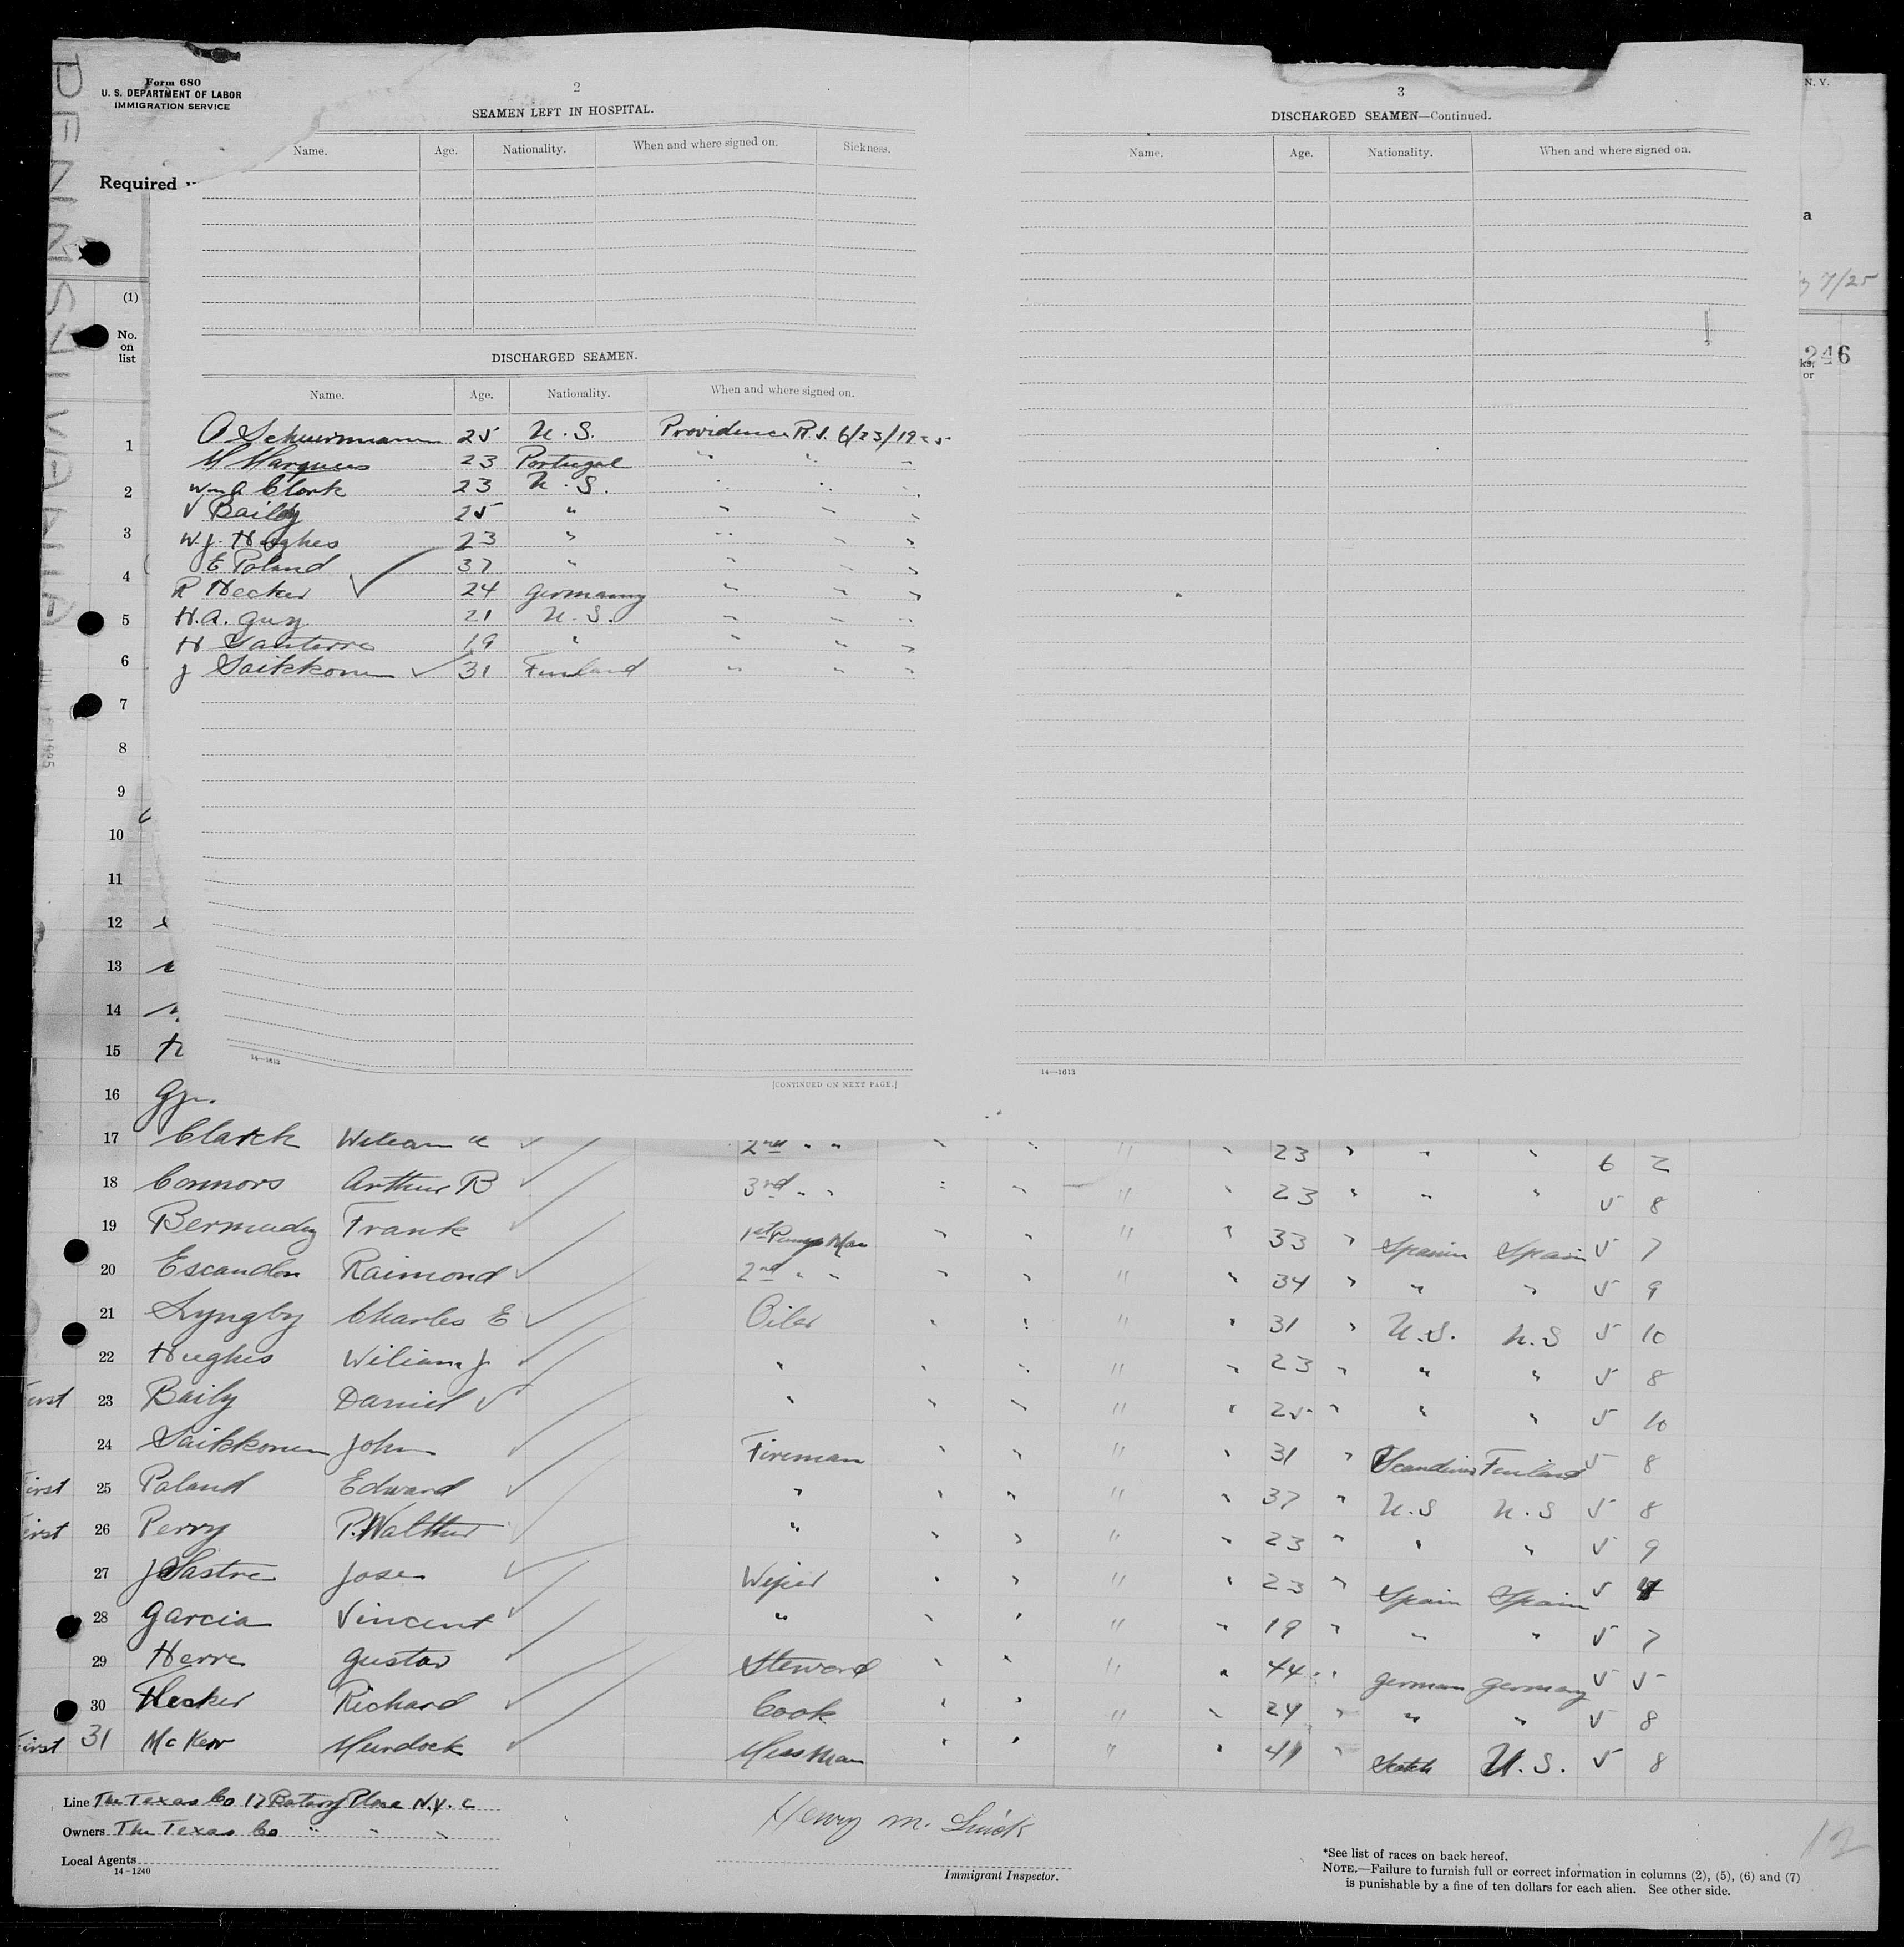 PENNSYLVANIA
Form 680
U. S. DEPARTMENT OF LABOR
IMMIGRATION SERVICE
Required
(1)
No. on list
2
SEAMEN LEFT IN HOSPITAL.
Name. Age. Nationality. When and where signed on. Sickness.
DISCHARGED SEAMEN.
Name. Age. Nationality. When and where signed on.
O Schuurmann 25 U.S. Providence R.I. 6/23/1925
M Marques 23 Portugal " " "
Wm A Clark 23 U.S. " " "
V Baily 25 " " " "
W.J. Hughes 23 " " " "
E Poland 37 " " " "
R Hecker ✓ 24 Germany " " "
H.A. Guy 21 U.S. " " "
H Santerre 19 " " " "
J Saikkonen ✓ 31 Finland " " "
14—1613
[CONTINUED ON NEXT PAGE.]
3
DISCHARGED SEAMEN—Continued.
Name. Age. Nationality. When and where signed on.
14—1613
N. Y.
a
7/25
246
ks, or
1
2
3
4
5
6
7
8
9
10
11
12
13
14
15
16
17 Clark William A ✓ 2nd " " " " " " 23 " " " 6 2
18 Connors Arthur B ✓ 3rd " " " " " " 23 " " " 5 8
19 Bermudez Frank ✓ 1st Pump Man " " " " 33 " Spanin Spain 5 7
20 Escandon Raimond ✓ 2nd " " " " " " 34 " " " 5 9
21 Lyngby Charles E ✓ Oiler " " " " 31 " U.S. U.S 5 10
22 Hughes Wiliam J. ✓ " " " " " 23 " " " 5 8
First 23 Baily Daniel V ✓ " " " " " 25 " " " 5 10
24 Saikkonen John ✓ Fireman " " " " 31 " Scandina Finland 5 8
First 25 Poland Edward ✓ " " " " " 37 " U.S U.S 5 8
First 26 Perry P. Walther ✓ " " " " " 23 " " " 5 9
27 Sastre Jose ✓ Wiper " " " " 23 " Spain Spain 5
28 Garcia Vincent ✓ " " " " " 19 " " " 5 7
29 Herre Gustav ✓ Steward " " " " 44 " German Germany 5 5
30 Hecker Richard ✓ Cook " " " " 24 " " " 5 8
First 31 McKerr Murdock ✓ Mess Man " " " " 41 " Scotch U.S. 5 8
Line The Texas Co 17 Battery Place N.Y. C
Owners The Texas Co " " "
Local Agents
14-1240
Henry M.
Immigrant Inspector.
12
*See list of races on back hereof.
NOTE.—Failure to furnish full or correct information in columns (2), (5), (6) and (7)
is punishable by a fine of ten dollars for each alien. See other side.